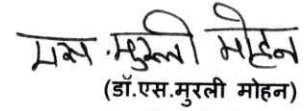 एस. मुरली मोहन
(डॉ.एस.मुरली मोहन)